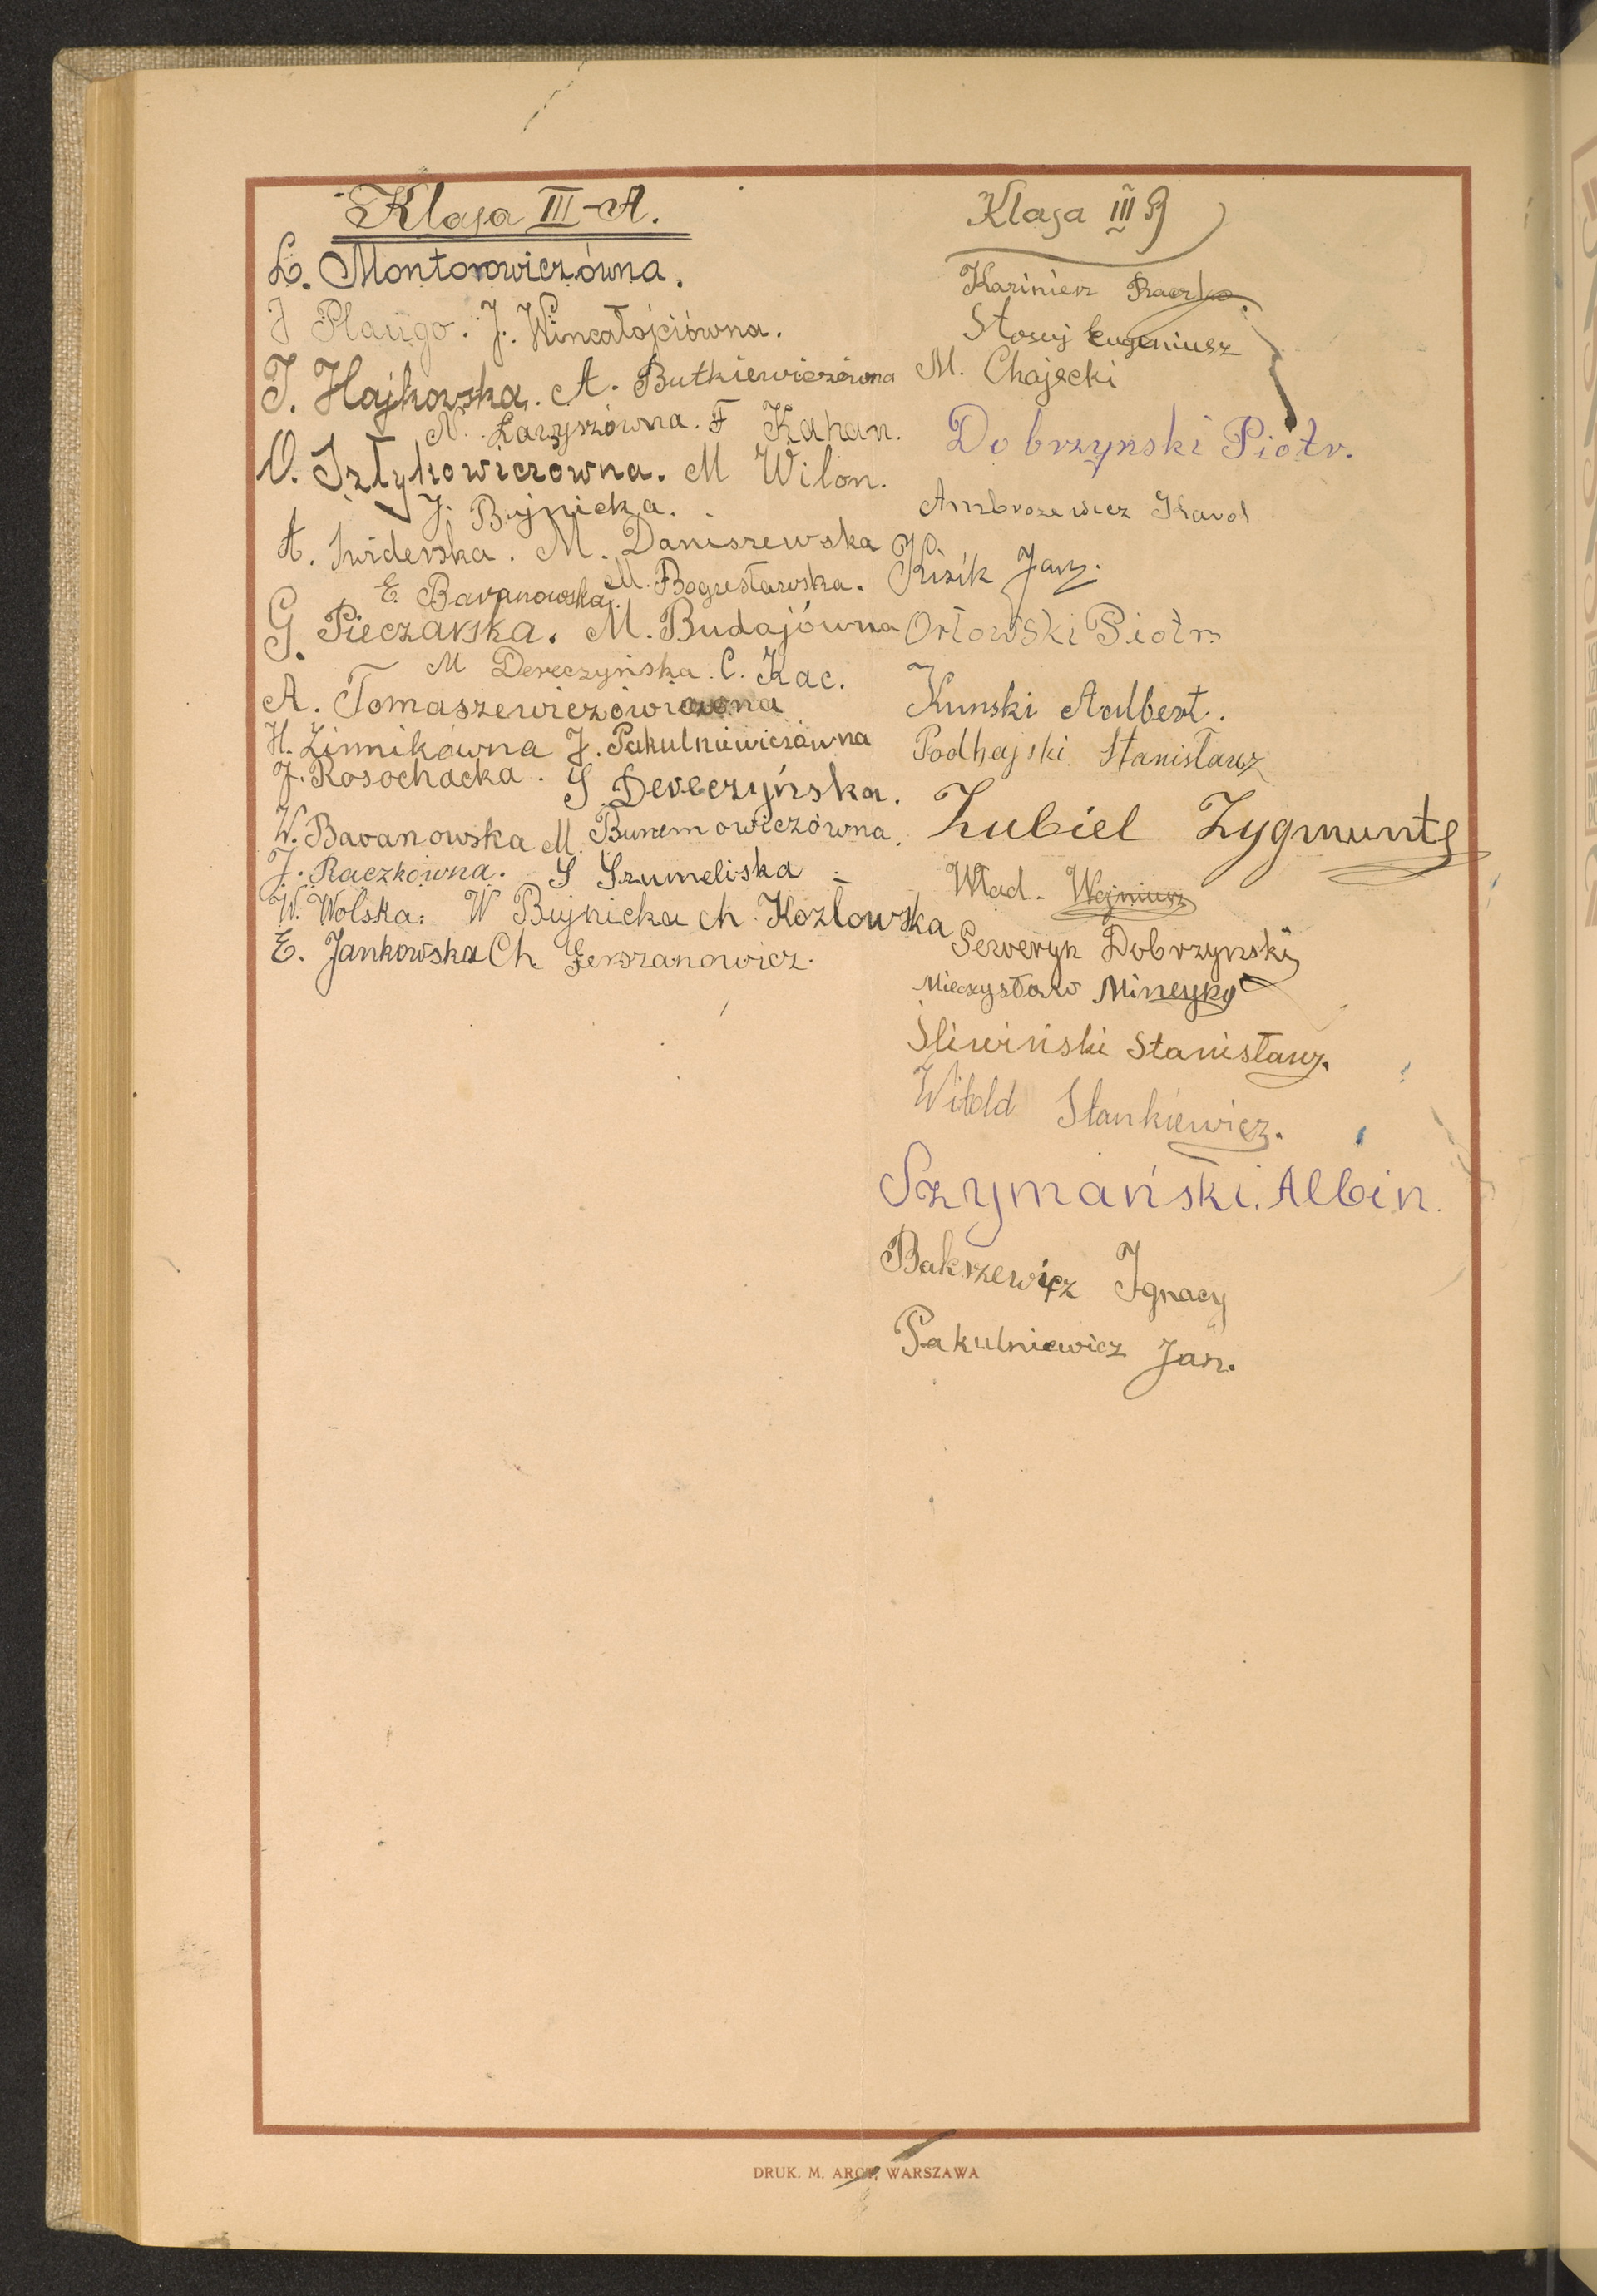 Klasa III-A.
L. Montorowiczówna.
J Plaugo. J. Wincałojciówna.
J. Hajkowska. A. Butkiewiczówna
N. Ławyszówna. F Kahan.
O. Sztykowiczówna. M Wilon.
J. Bujnicka.
A. Swiderska. M. Daniszewska
E. Baranowska. M. Bogusławska.
G. Pieczarska. M. Budajówna
M Dereczyńska. C. Kac.
A. Tomaszewiczówna
H. Zinnikówna J. Pakulniewiczówna
J. Rosochacka. S Dereczyńska.
W. Baranowska M. Bunemowiczówna.
J. Raczkówna. S Szumeliska
W. Wolska. W Bujnicka Ch. Kozłowska
E. Jankowska Ch Gerszanowicz.
Klasa III B
Kazimierz Raczko
Stosuj Eugeniusz
M. Chajecki
Dobrzynski Piotr.
Ambrozewicz Karol
Kizik Jan.
Orłowski Piotr
Kunski Adlbert.
Podhajski Stanisław
Zubiel Zygmunt
Wład. Wojniusz
Seweryn Dobrzynski
Mieczysław Mineyko
Śliwiński Stanisław.
Witold Stankiewicz.
Szymański. Albin.
Bakszewicz Ignacy
Pakulniewicz Jan.
DRUK. M. ARCT, WARSZAWA